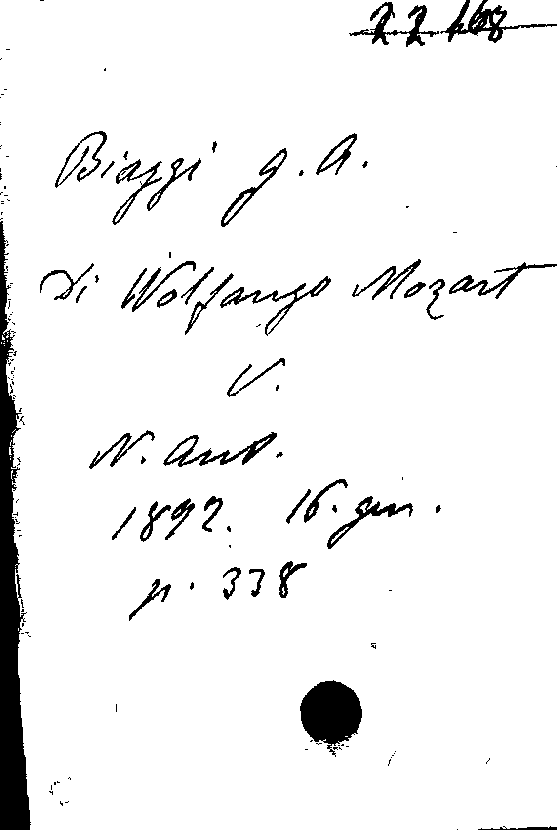 22.168
Biaggi G. A.
Di Wolfango Mozart
V.
N. Ant.
1892. 16. gen.
p. 338